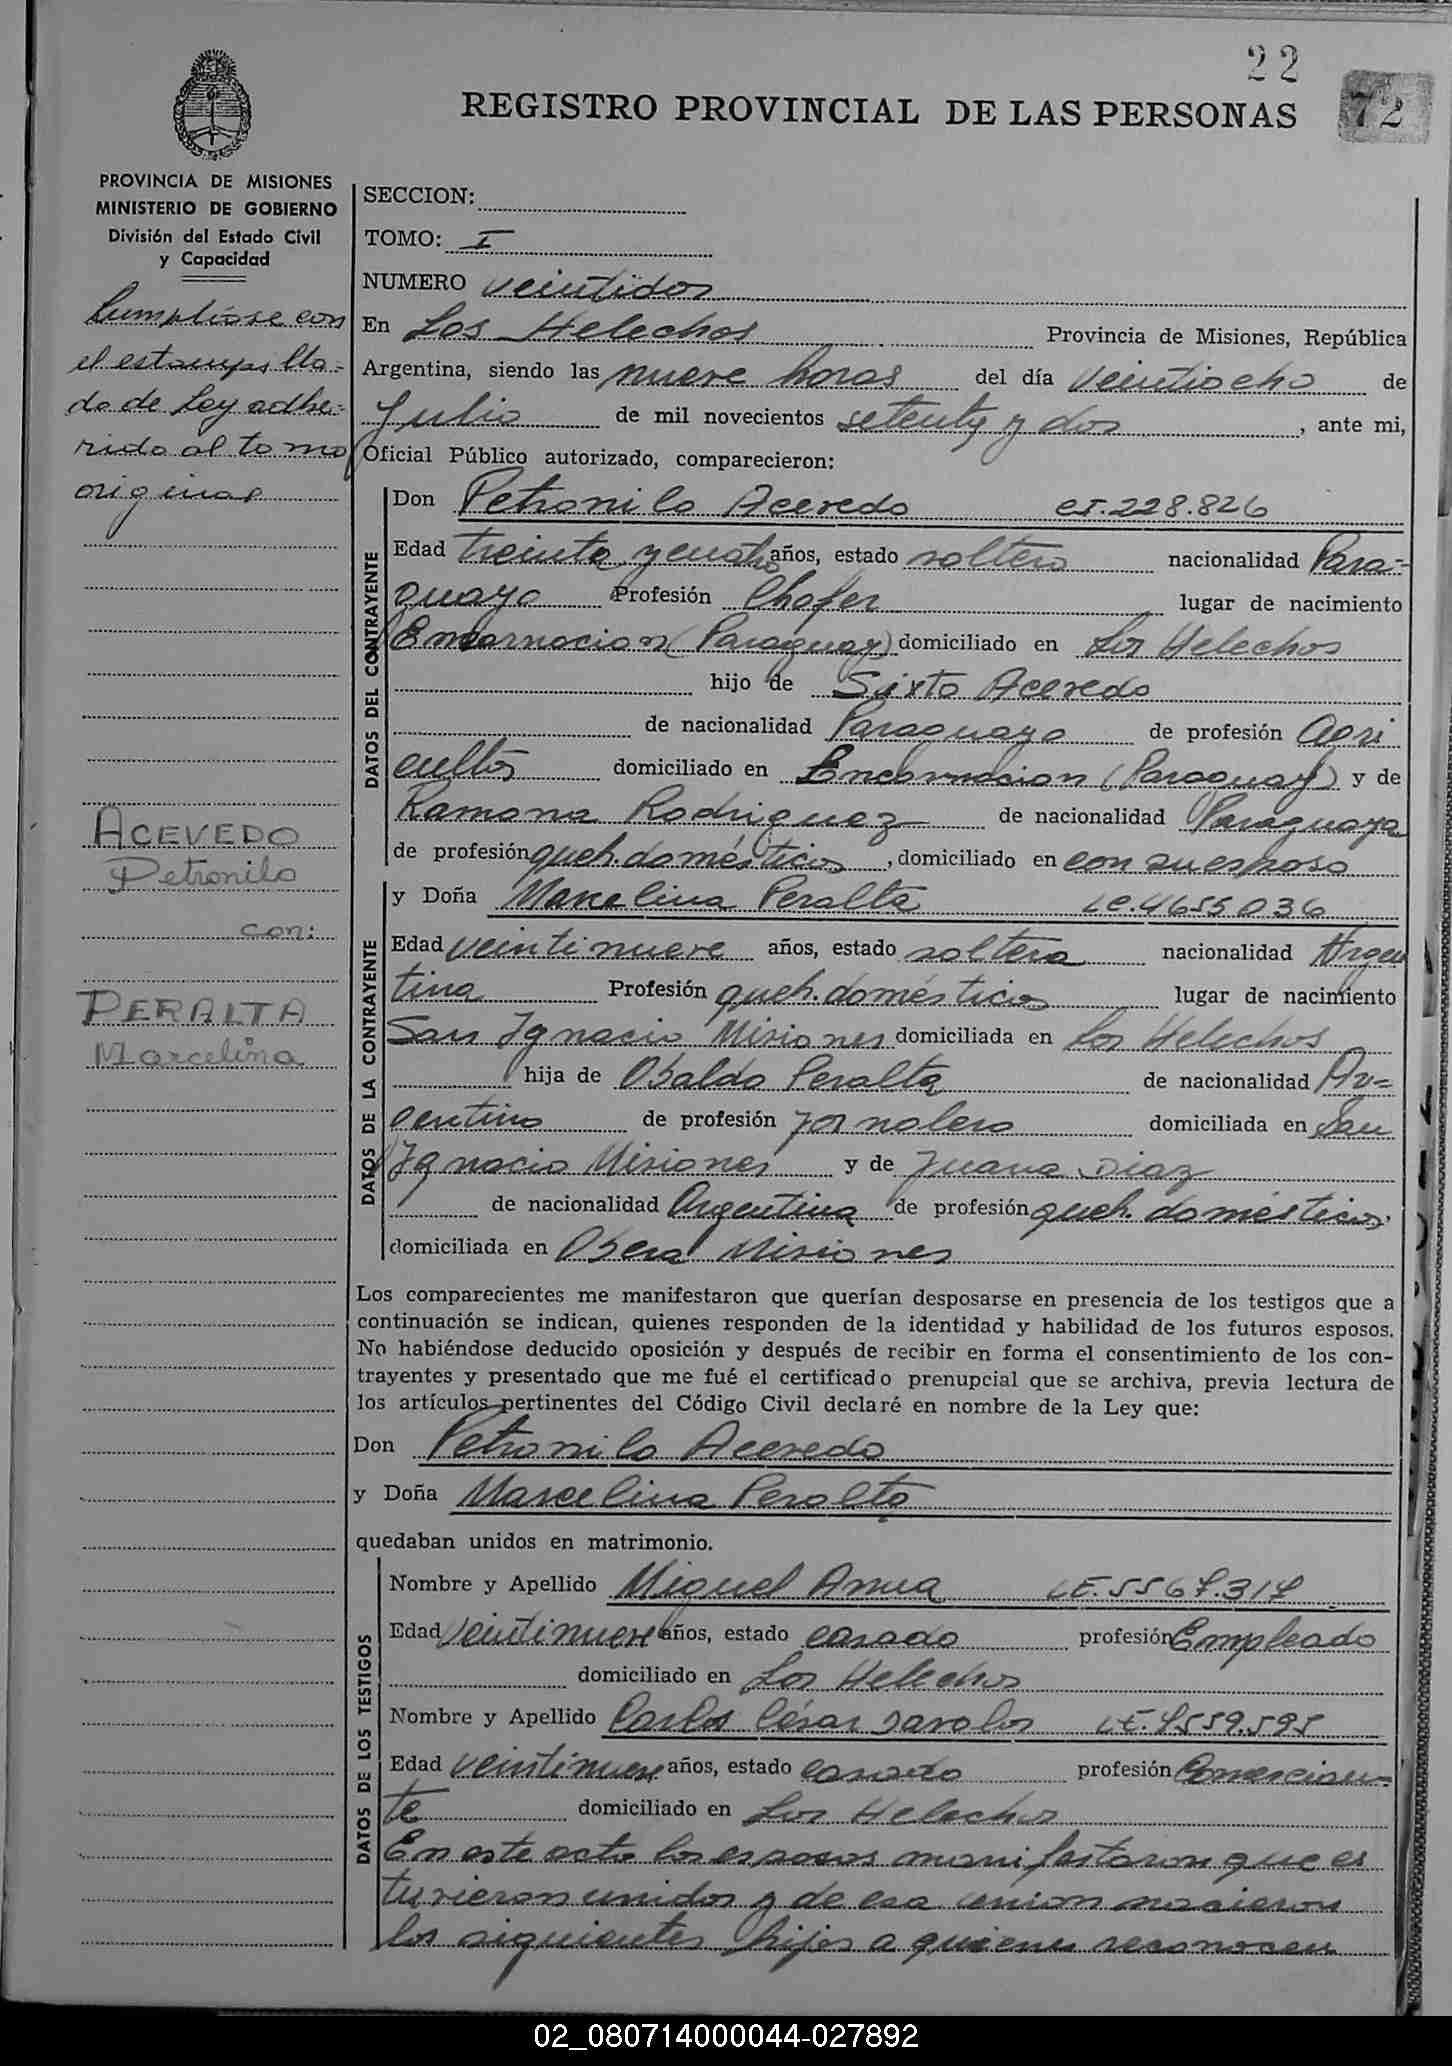 22
REGISTRO PROVINCIAL DE LAS PERSONAS
72
PROVINCIA DE MISIONES
MINISTERIO DE GOBIERNO
División del Estado Civil
y Capacidad
Cumplióse con
el estampilla-
do de Ley adhe-
rido al tomo
original
ACEVEDO
Petronilo
con:
PERALTA
Marcelina
SECCION:
TOMO: I
NUMERO veintidos
En Los Helechos Provincia de Misiones, República
Argentina, siendo las nueve horas del día veintiocho de
Julio de mil novecientos setenta y dos, ante mi,
Oficial Público autorizado, comparecieron:
DATOS DEL CONTRAYENTE
Don Petronilo Acevedo CI.228.826
Edad treinta y cuatro años, estado soltero nacionalidad Para-
guayo Profesión Chofer lugar de nacimiento
Encarnacion (Paraguay) domiciliado en Los Helechos
hijo de Sixto Acevedo
de nacionalidad Paraguayo de profesión Agri
cultor domiciliado en Encarnacion (Paraguay) y de
Ramona Rodriguez de nacionalidad Paraguaya
de profesión queh. domésticos, domiciliado en con su esposo
DATOS DE LA CONTRAYENTE
y Doña Marcelina Peralta LC.4655036
Edad veintinueve años, estado soltera nacionalidad Argen
tina Profesión queh. domésticos lugar de nacimiento
San Ignacio Misiones domiciliada en Los Helechos
hija de Obaldo Peralta de nacionalidad Ar=
gentino de profesión jornalero domiciliada en San
Ignacio Misiones y de Juana Diaz
de nacionalidad Argentina de profesión queh. domésticos
domiciliada en Obera Misiones
Los comparecientes me manifestaron que querían desposarse en presencia de los testigos que a
continuación se indican, quienes responden de la identidad y habilidad de los futuros esposos.
No habiéndose deducido oposición y después de recibir en forma el consentimiento de los con-
trayentes y presentado que me fué el certificado prenupcial que se archiva, previa lectura de
los artículos pertinentes del Código Civil declaré en nombre de la Ley que:
Don Petronilo Acevedo
y Doña Marcelina Peralta
quedaban unidos en matrimonio.
DATOS DE LOS TESTIGOS
Nombre y Apellido Miguel
Edad veintinueve años, estado casado profesión Empleado
domiciliado en Los Helechos
Nombre y Apellido Carlos César
Edad veintinueve años, estado casado profesión Comercian-
te domiciliado en Los Helechos
En este acto los esposos manifestaron que es
tuvieron unidos y de esa union nacieron
los siguientes hijos a quienes reconocen
02_080714000044-027892